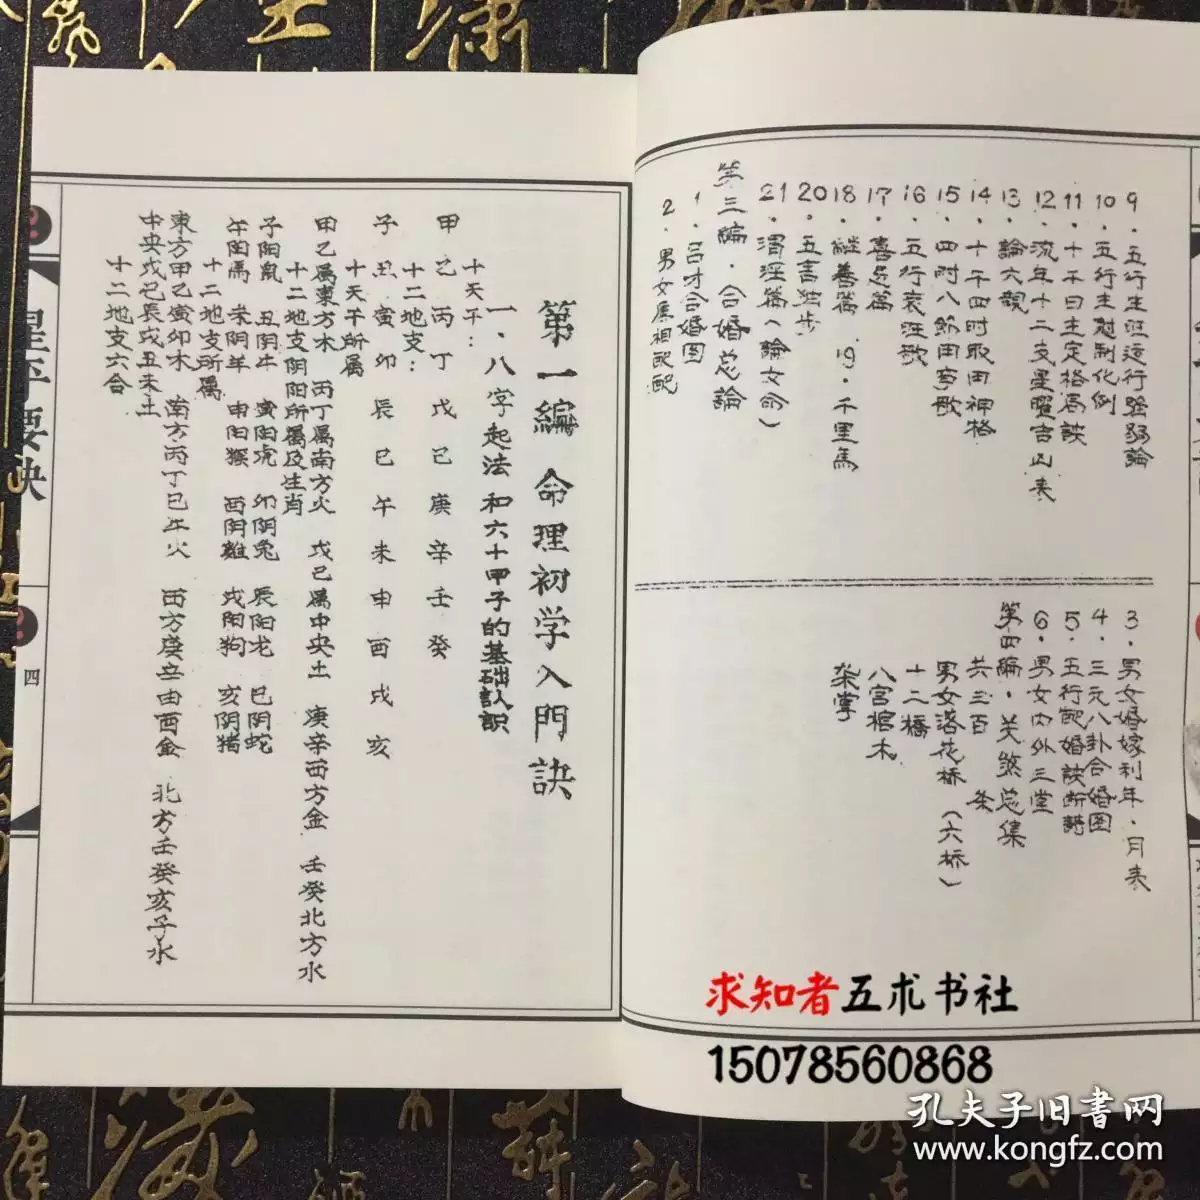 9．五行生旺运行强弱論
10．五行生尅制化例
11．十干日主定格局訣
12．流年十二支星曜吉凶表
13．論六親
14．十干四时取用神格
15．四时八節用事歌
16．五行衰旺歌
17．喜忌篇
18．継善篇 19．千里馬
20．五言独步
21．渭泾篇（論女命）
第三編．合婚总論
1．吕才合婚图
2．男女属相配配
3．男女婚嫁利年．月表
4．三元八卦合婚图
5．五行配婚訣断語
6．男女内外三堂
第四編．关煞总集
共三百 条
男女落花桥（六桥）
十二橋
八宫棺木
架掌
第一編 命理初学入門訣
一．八字起法和六十甲子的基础认识
十天干：
甲乙丙丁戊己庚辛壬癸
十二地支：
子丑寅卯辰巳午未申酉戌亥
十天干所属
甲乙属東方木 丙丁属南方火 戊己属中央土 庚辛西方金 壬癸北方水
十二地支阴阳所属及生肖
子阳鼠 丑阴牛 寅阳虎 卯阴兔 辰阳龙 巳阴蛇
午阳馬 未阴羊 申阳猴 酉阴雞 戌阳狗 亥阴猪
十二地支所属
東方甲乙寅卯木 南方丙丁巳午火 西方庚辛申酉金 北方壬癸亥子水
中央戊己辰戌丑未土
十二地支六合
星平要诀
四
求知者五术书社
15078560868
孔夫子旧書网
www.kongfz.com